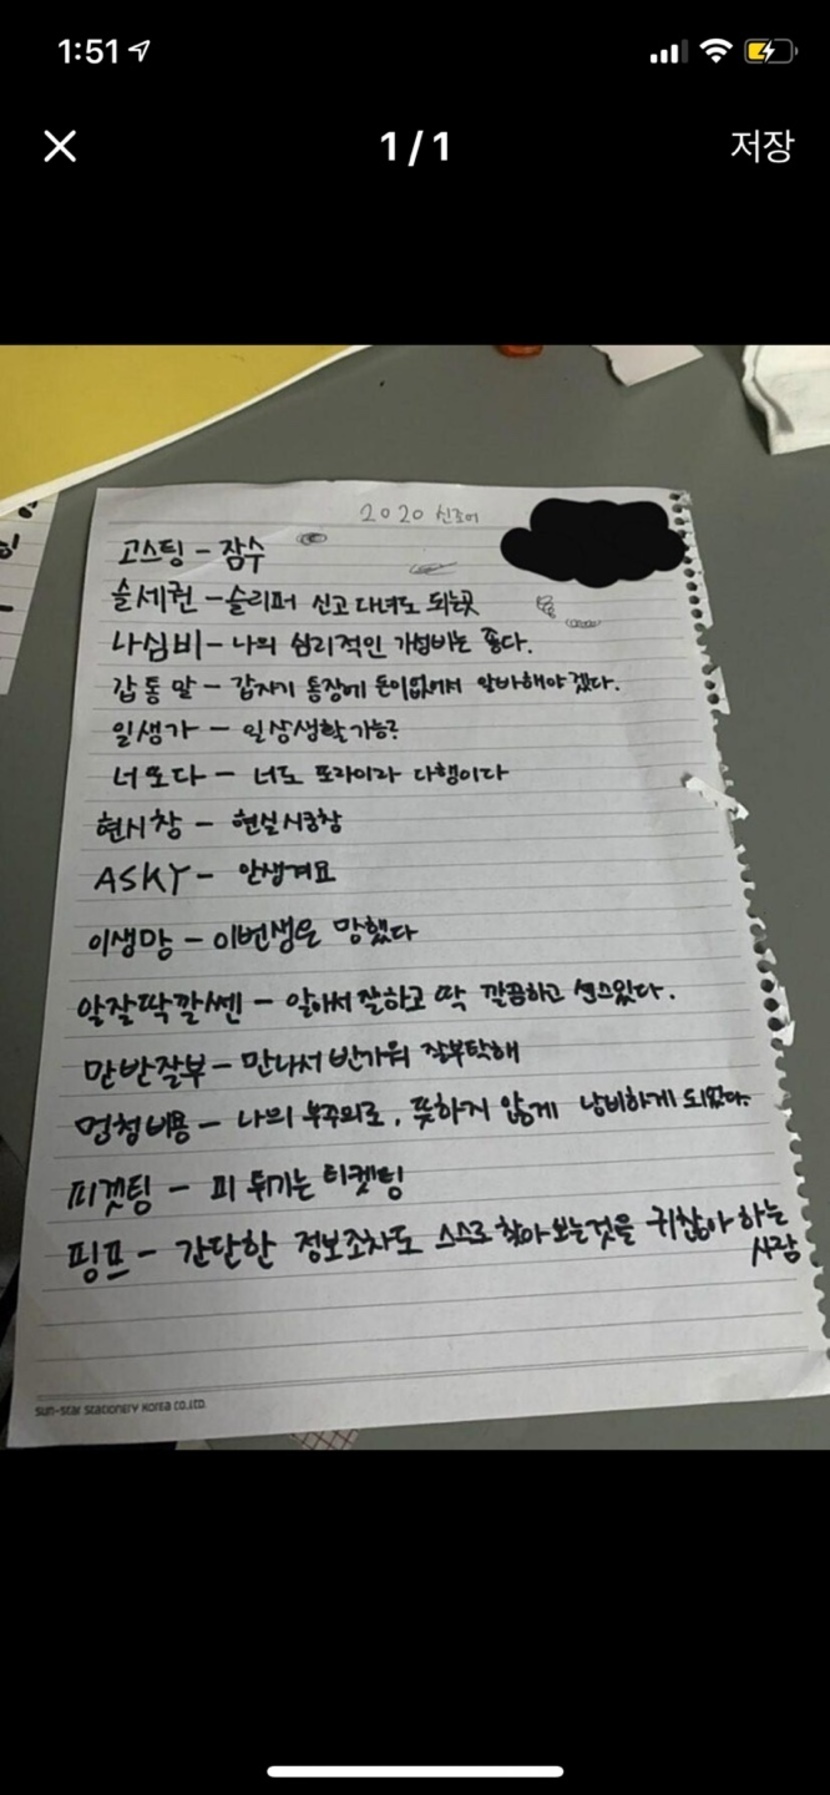 1:51
1 / 1
저장
2020 신조어
고스팅 - 잠수
슬세권 - 슬리퍼 신고 다녀도 되는곳
나심비 - 나의 심리적인 가성비는 좋다.
갑통알 - 갑자기 통장에 돈이없어서 알바해야겠다.
일생가 - 일상생활가능?
너또다 - 너도 또라이라 다행이다
현시창 - 현실 시궁창
ASKY - 안생겨요
이생망 - 이번생은 망했다
알잘딱깔쎈 - 알아서 잘하고 딱 깔끔하고 센스있다.
만반잘부 - 만나서 반가워 잘부탁해
멍청비용 - 나의 부주의로, 뜻하지 않게 낭비하게 되었다.
피켓팅 - 피 튀기는 티켓팅
핑프 - 간단한 정보조차도 스스로 찾아 보는것을 귀찮아 하는
사람
Sun-Star Stationery Korea Co.,Ltd.